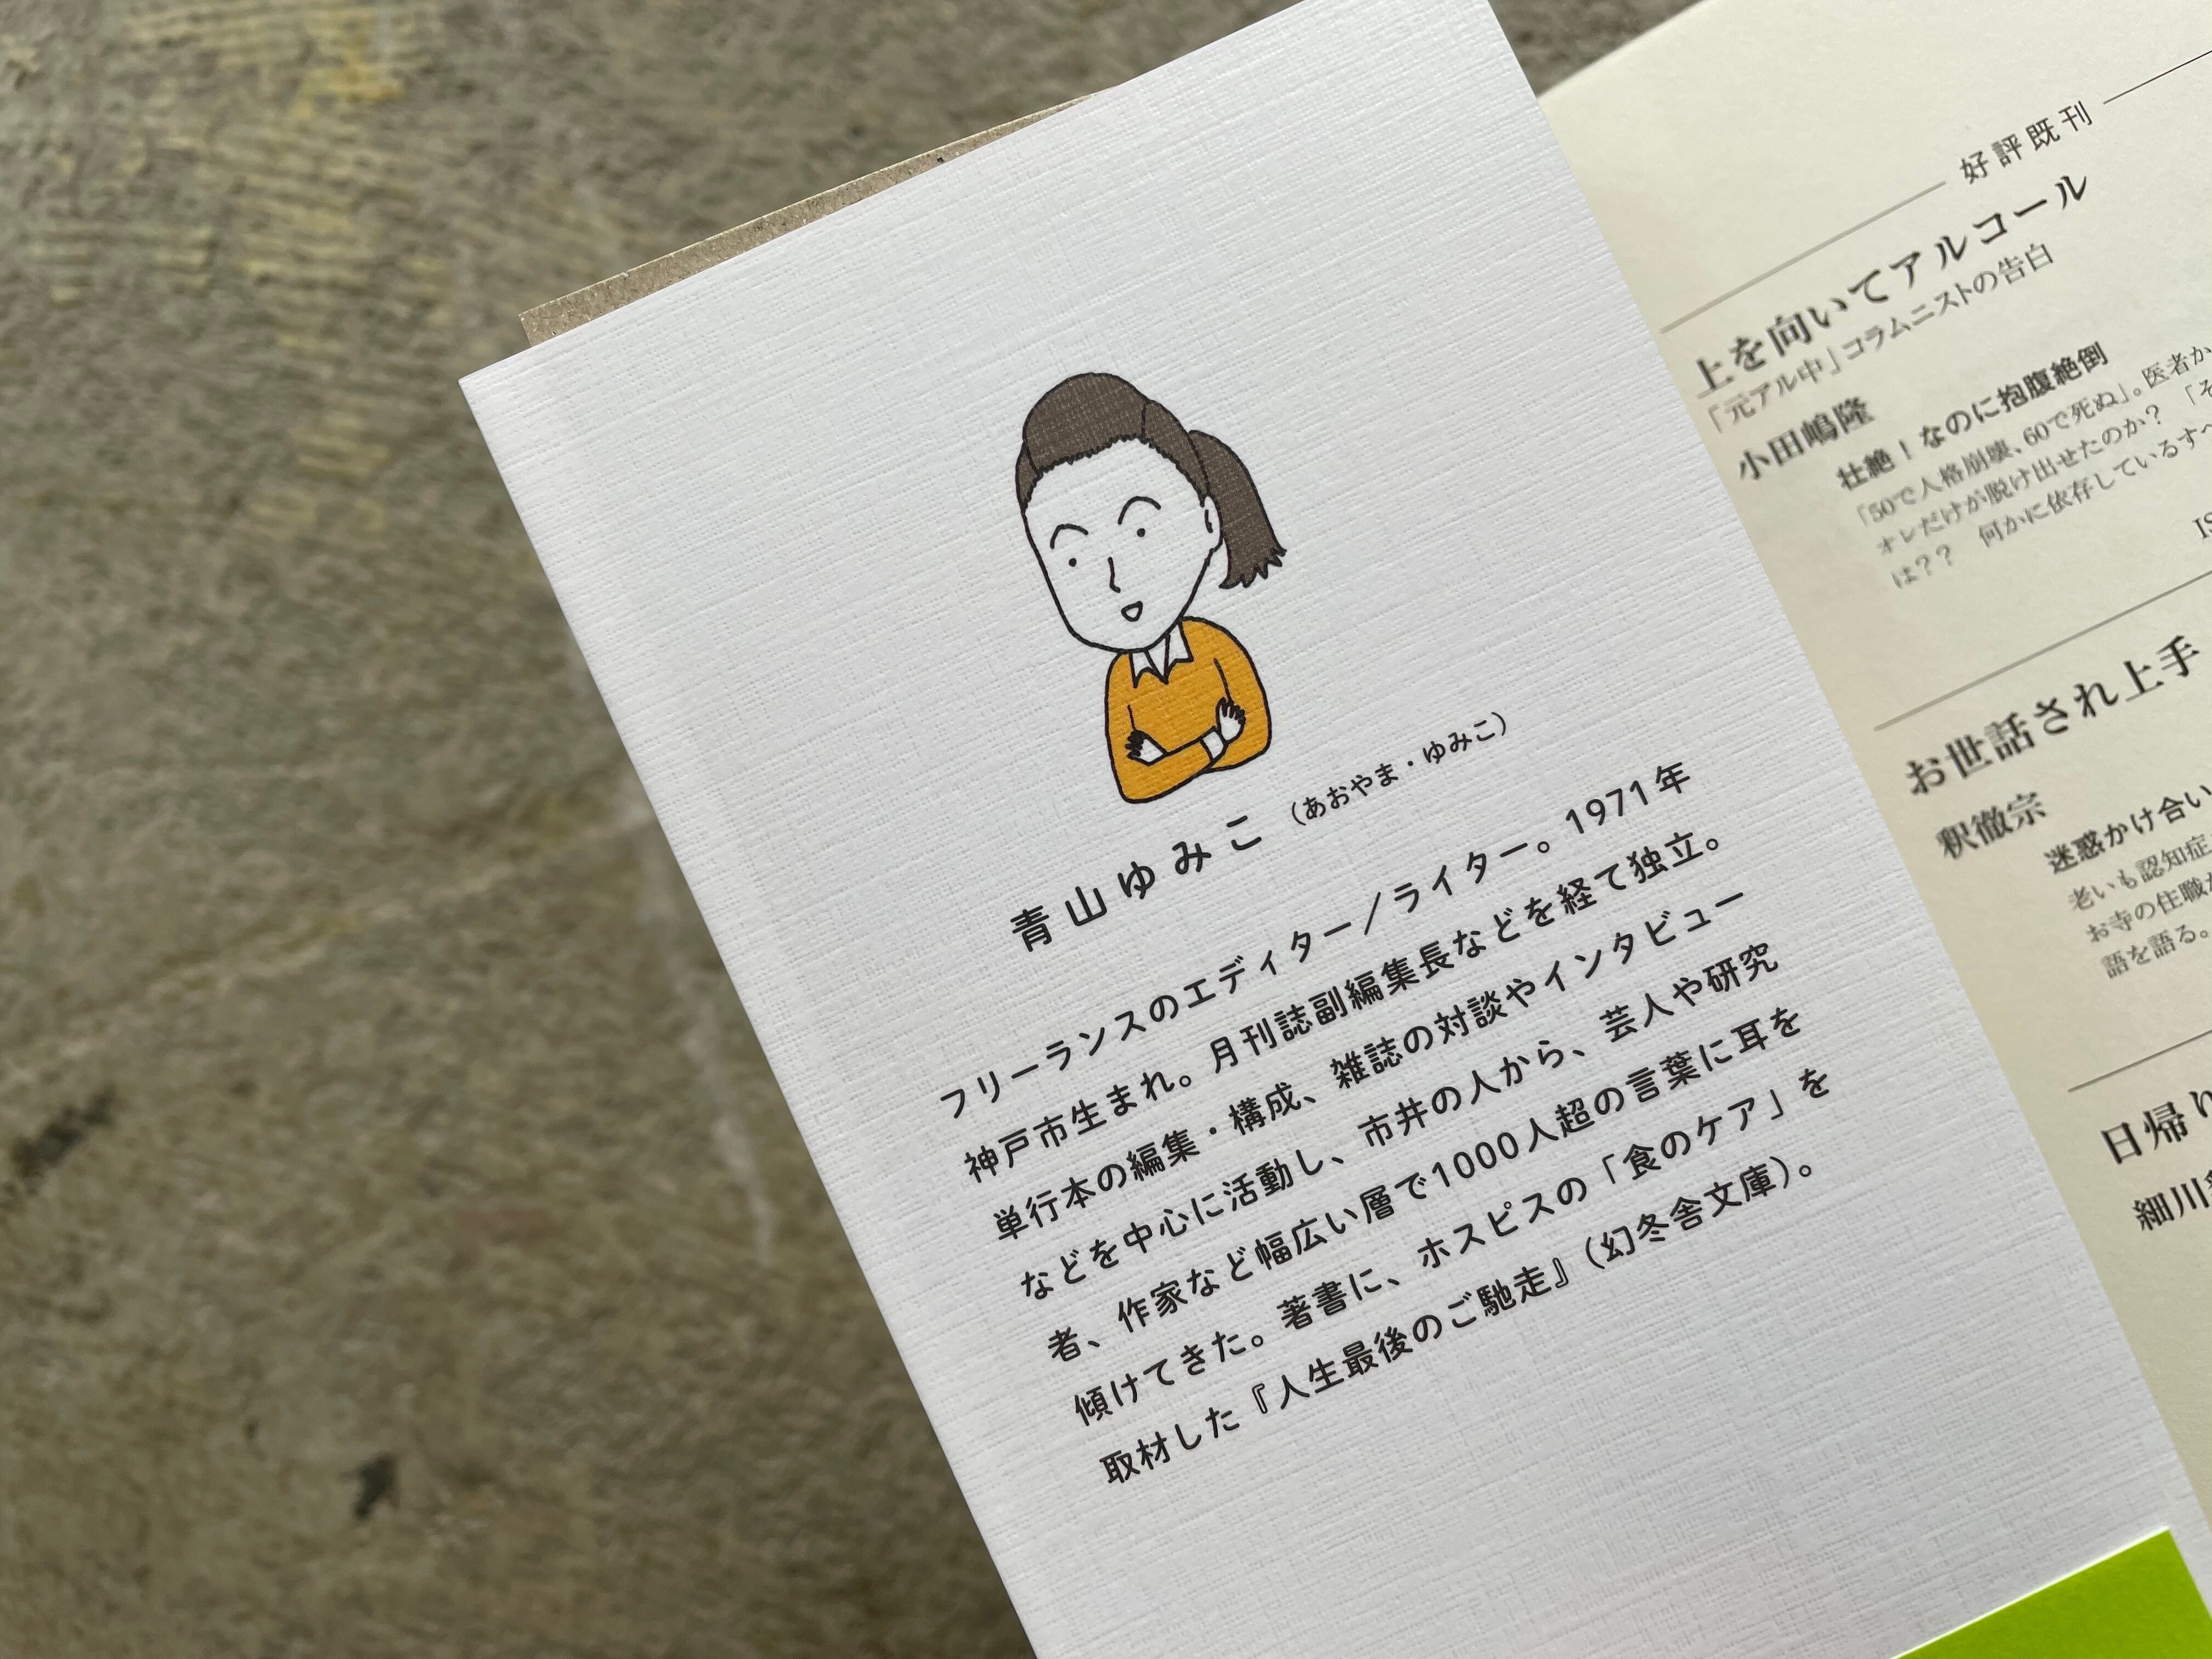 青山ゆみこ（あおやま・ゆみこ）
フリーランスのエディター／ライター。1971年
神戸市生まれ。月刊誌副編集長などを経て独立。
単行本の編集・構成、雑誌の対談やインタビュー
などを中心に活動し、市井の人から、芸人や研究
者、作家など幅広い層で1000人超の言葉に耳を
傾けてきた。著書に、ホスピスの「食のケア」を
取材した『人生最後のご馳走』（幻冬舎文庫）。
好評既刊
上を向いてアルコール
「元アル中」コラムニストの告白
小田嶋隆
壮絶！なのに抱腹絶倒
「50で人格崩壊、60で死ぬ」。医者か
オレだけが脱け出せたのか？　「そ
は？？　何かに依存しているすべ
IS
お世話され上手
釈徹宗
迷惑かけ合い
老いも認知症
お寺の住職が
語を語る。
日帰り
細川